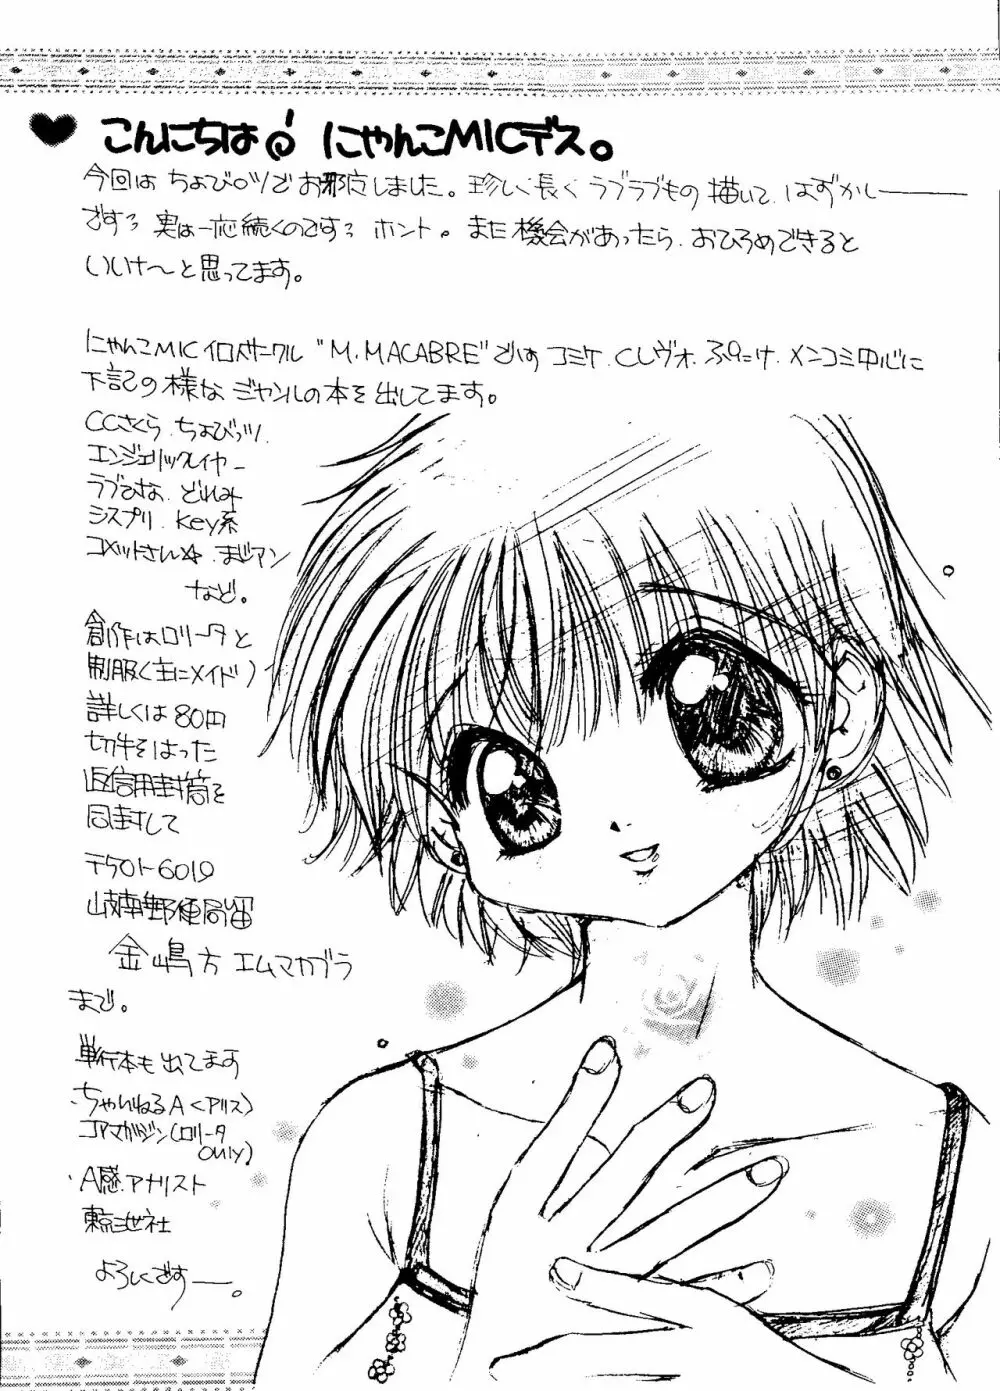 こんにちは♪ にゃんこMICデス。
今回は ちょびっツでお邪魔しました。珍しく長く ラブラブもの描いて、はずかしー
ですっ 実は一応続くのですっ ホント。また機会があったら、おひろめできると
いいな～と思ってます。
にゃんこMIC "M.MACABRE"では コミケ、Cレヴォ、ぷにけ、メンコミ中心に
下記の様な ジャンルの本を出してます。
CCさくら、ちょびっツ、
エンジェリックレイヤー
ラブひな、どれみ
シスプリ、key系
コメットさん☆、まじアン
など。
創作はロリータと
制服(主にメイド)
詳しくは80円
切手をはった
返信用封筒を
同封して
岐南郵便局留
金嶋方 エムマカブラ
まで。
単行本も出てます
・ちゃいねるA<アリス>
コアマガジン(ロリータ
only)
・A感.アナリスト
東京三世社
よろしくですー。